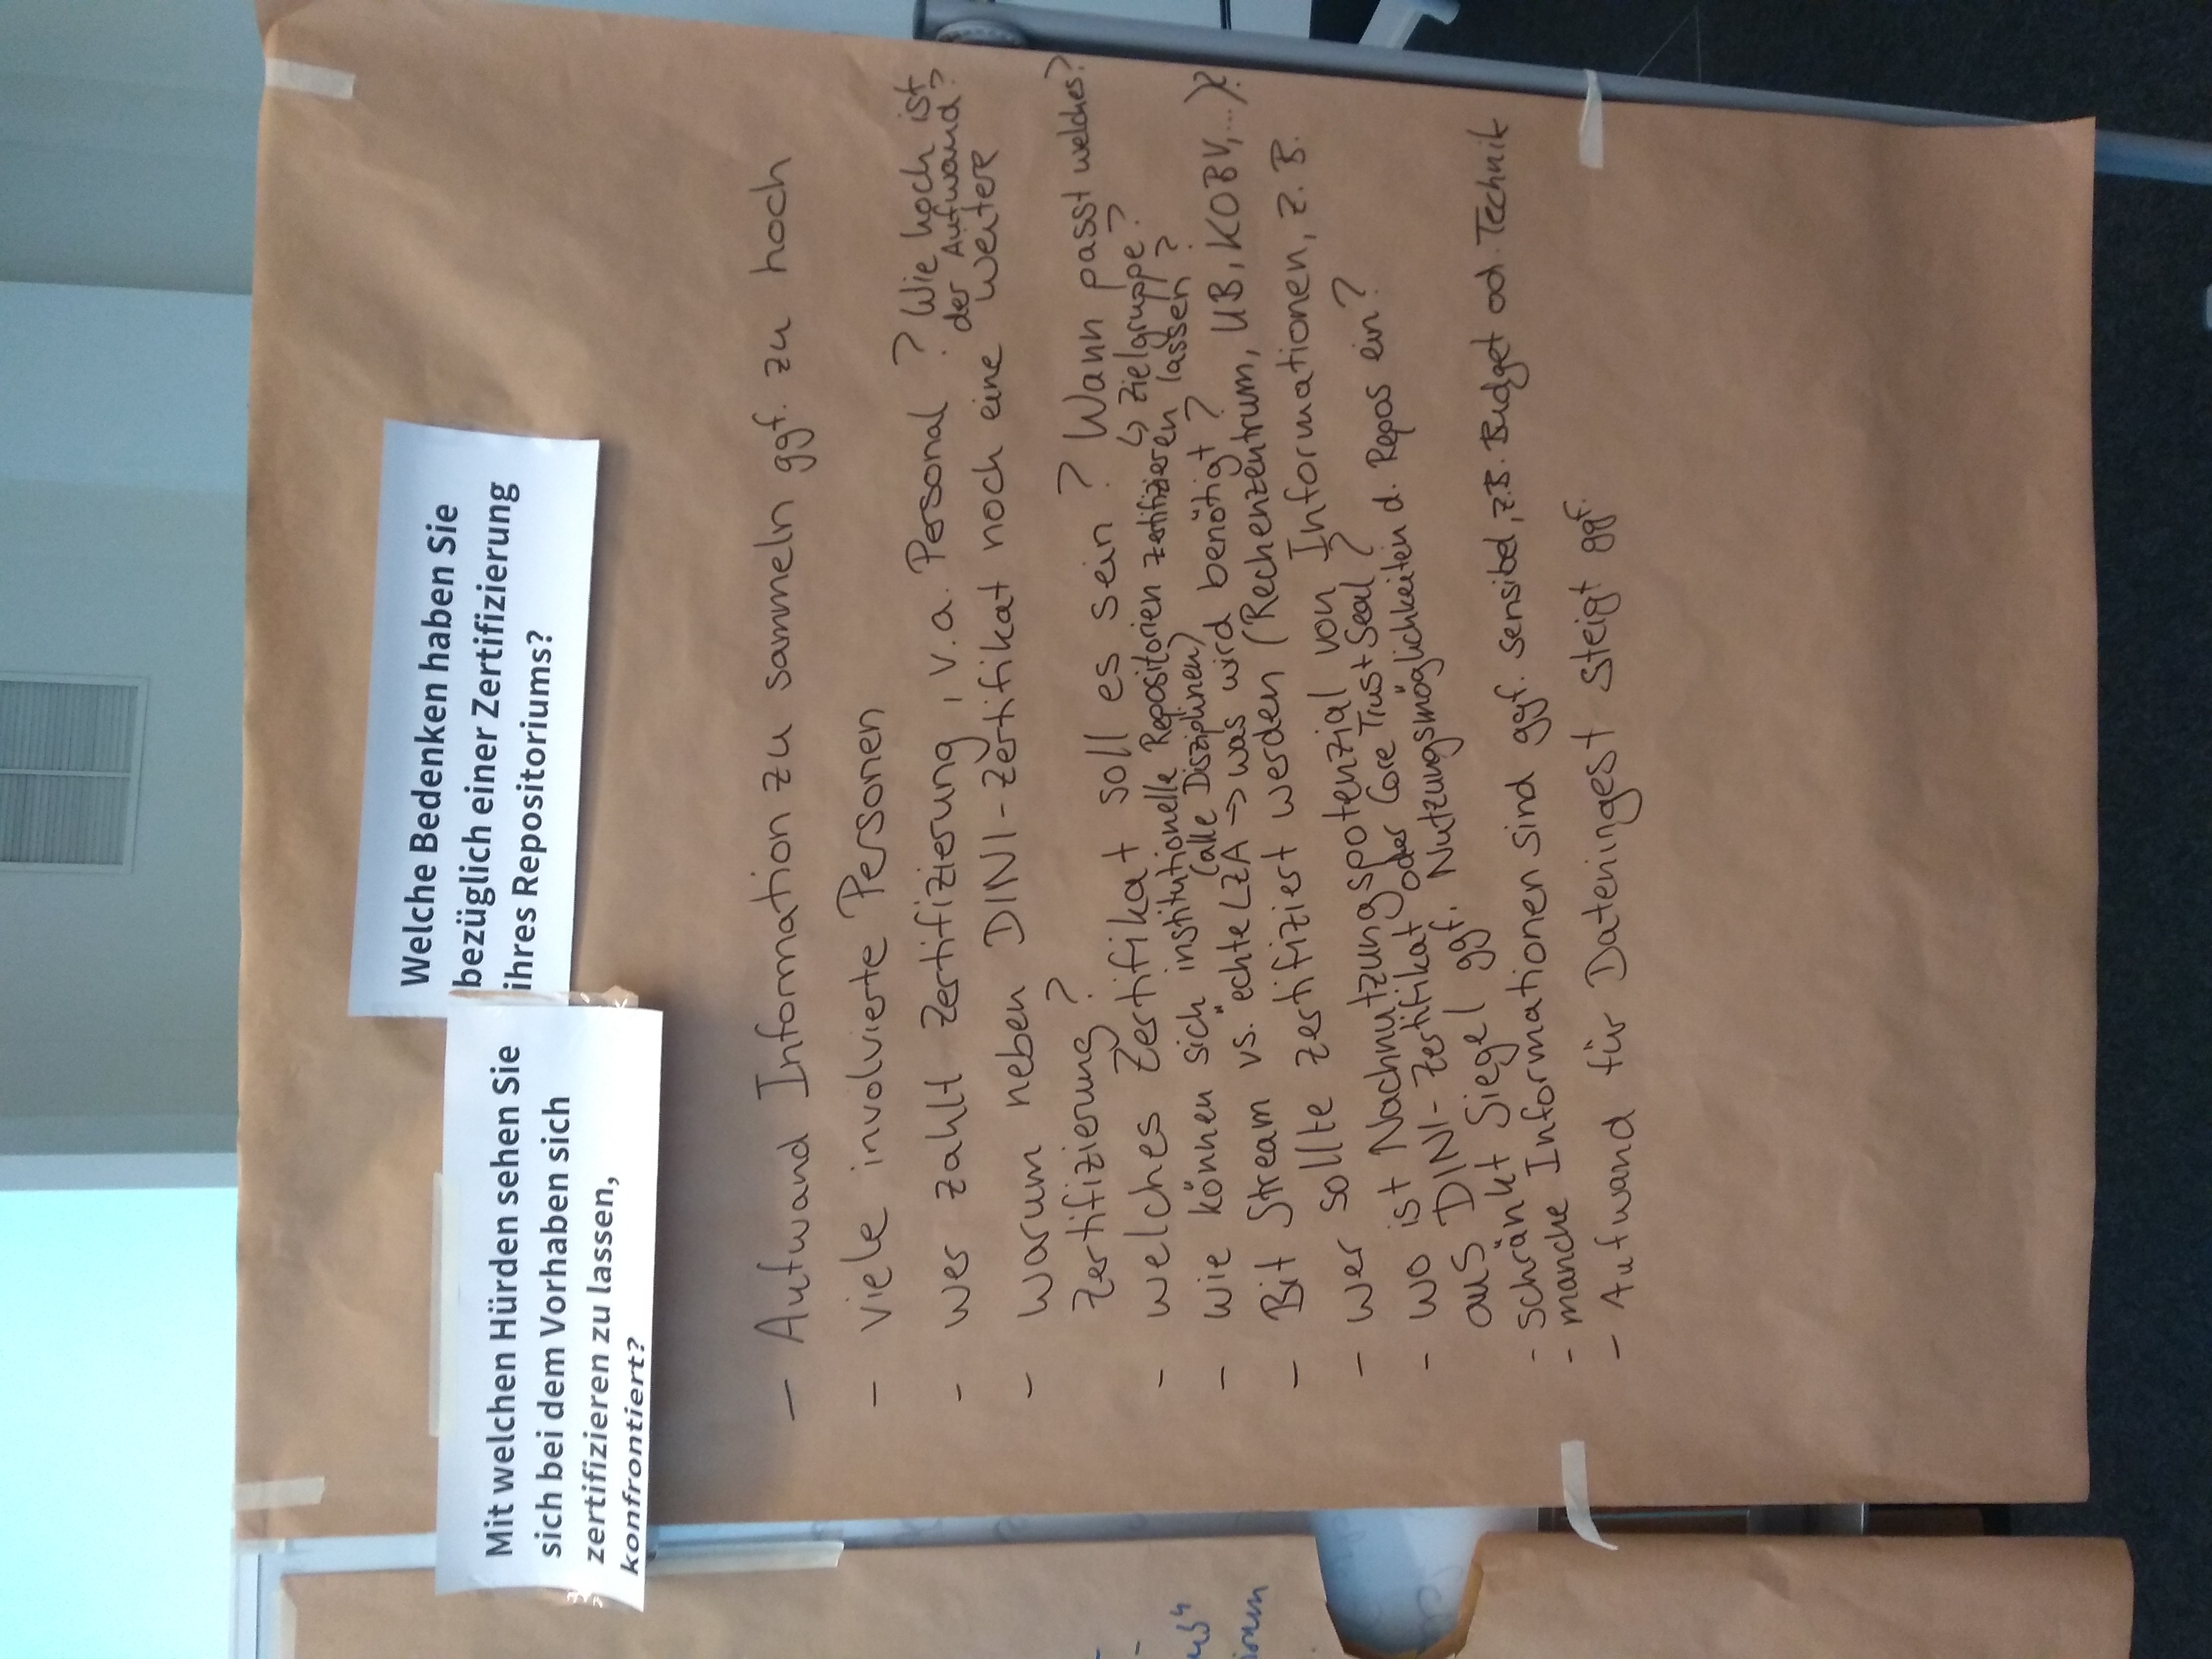 Mit welchen Hürden sehen Sie
sich bei dem Vorhaben sich
zertifizieren zu lassen,
konfrontiert?
Welche Bedenken haben Sie
bezüglich einer Zertifizierung
ihres Repositoriums?
- Aufwand Information zu sammeln ggf. zu hoch
- viele involvierte Personen
- wer zahlt Zertifizierung, v.a. Personal? Wie hoch ist
der Aufwand?
- warum neben DINI-Zertifikat noch eine weitere
Zertifizierung?
- welches Zertifikat soll es sein? Wann passt welches?
↳ Zielgruppe?
- wie können sich institutionelle Repositorien zertifizieren lassen?
(alle Disziplinen)
- Bit Stream vs. "echte LZA → was wird benötigt?
- wer sollte zertifiziert werden (Rechenzentrum, UB, KOBV, ...)?
- wo ist Nachnutzungspotenzial von Informationen, z.B.
aus DINI-Zertifikat oder Core Trust Seal?
- schränkt Siegel ggf. Nutzungsmöglichkeiten d. Repos ein?
- manche Informationen sind ggf. sensibel, z.B. Budget od. Technik
- Aufwand für Dateningest steigt ggf.